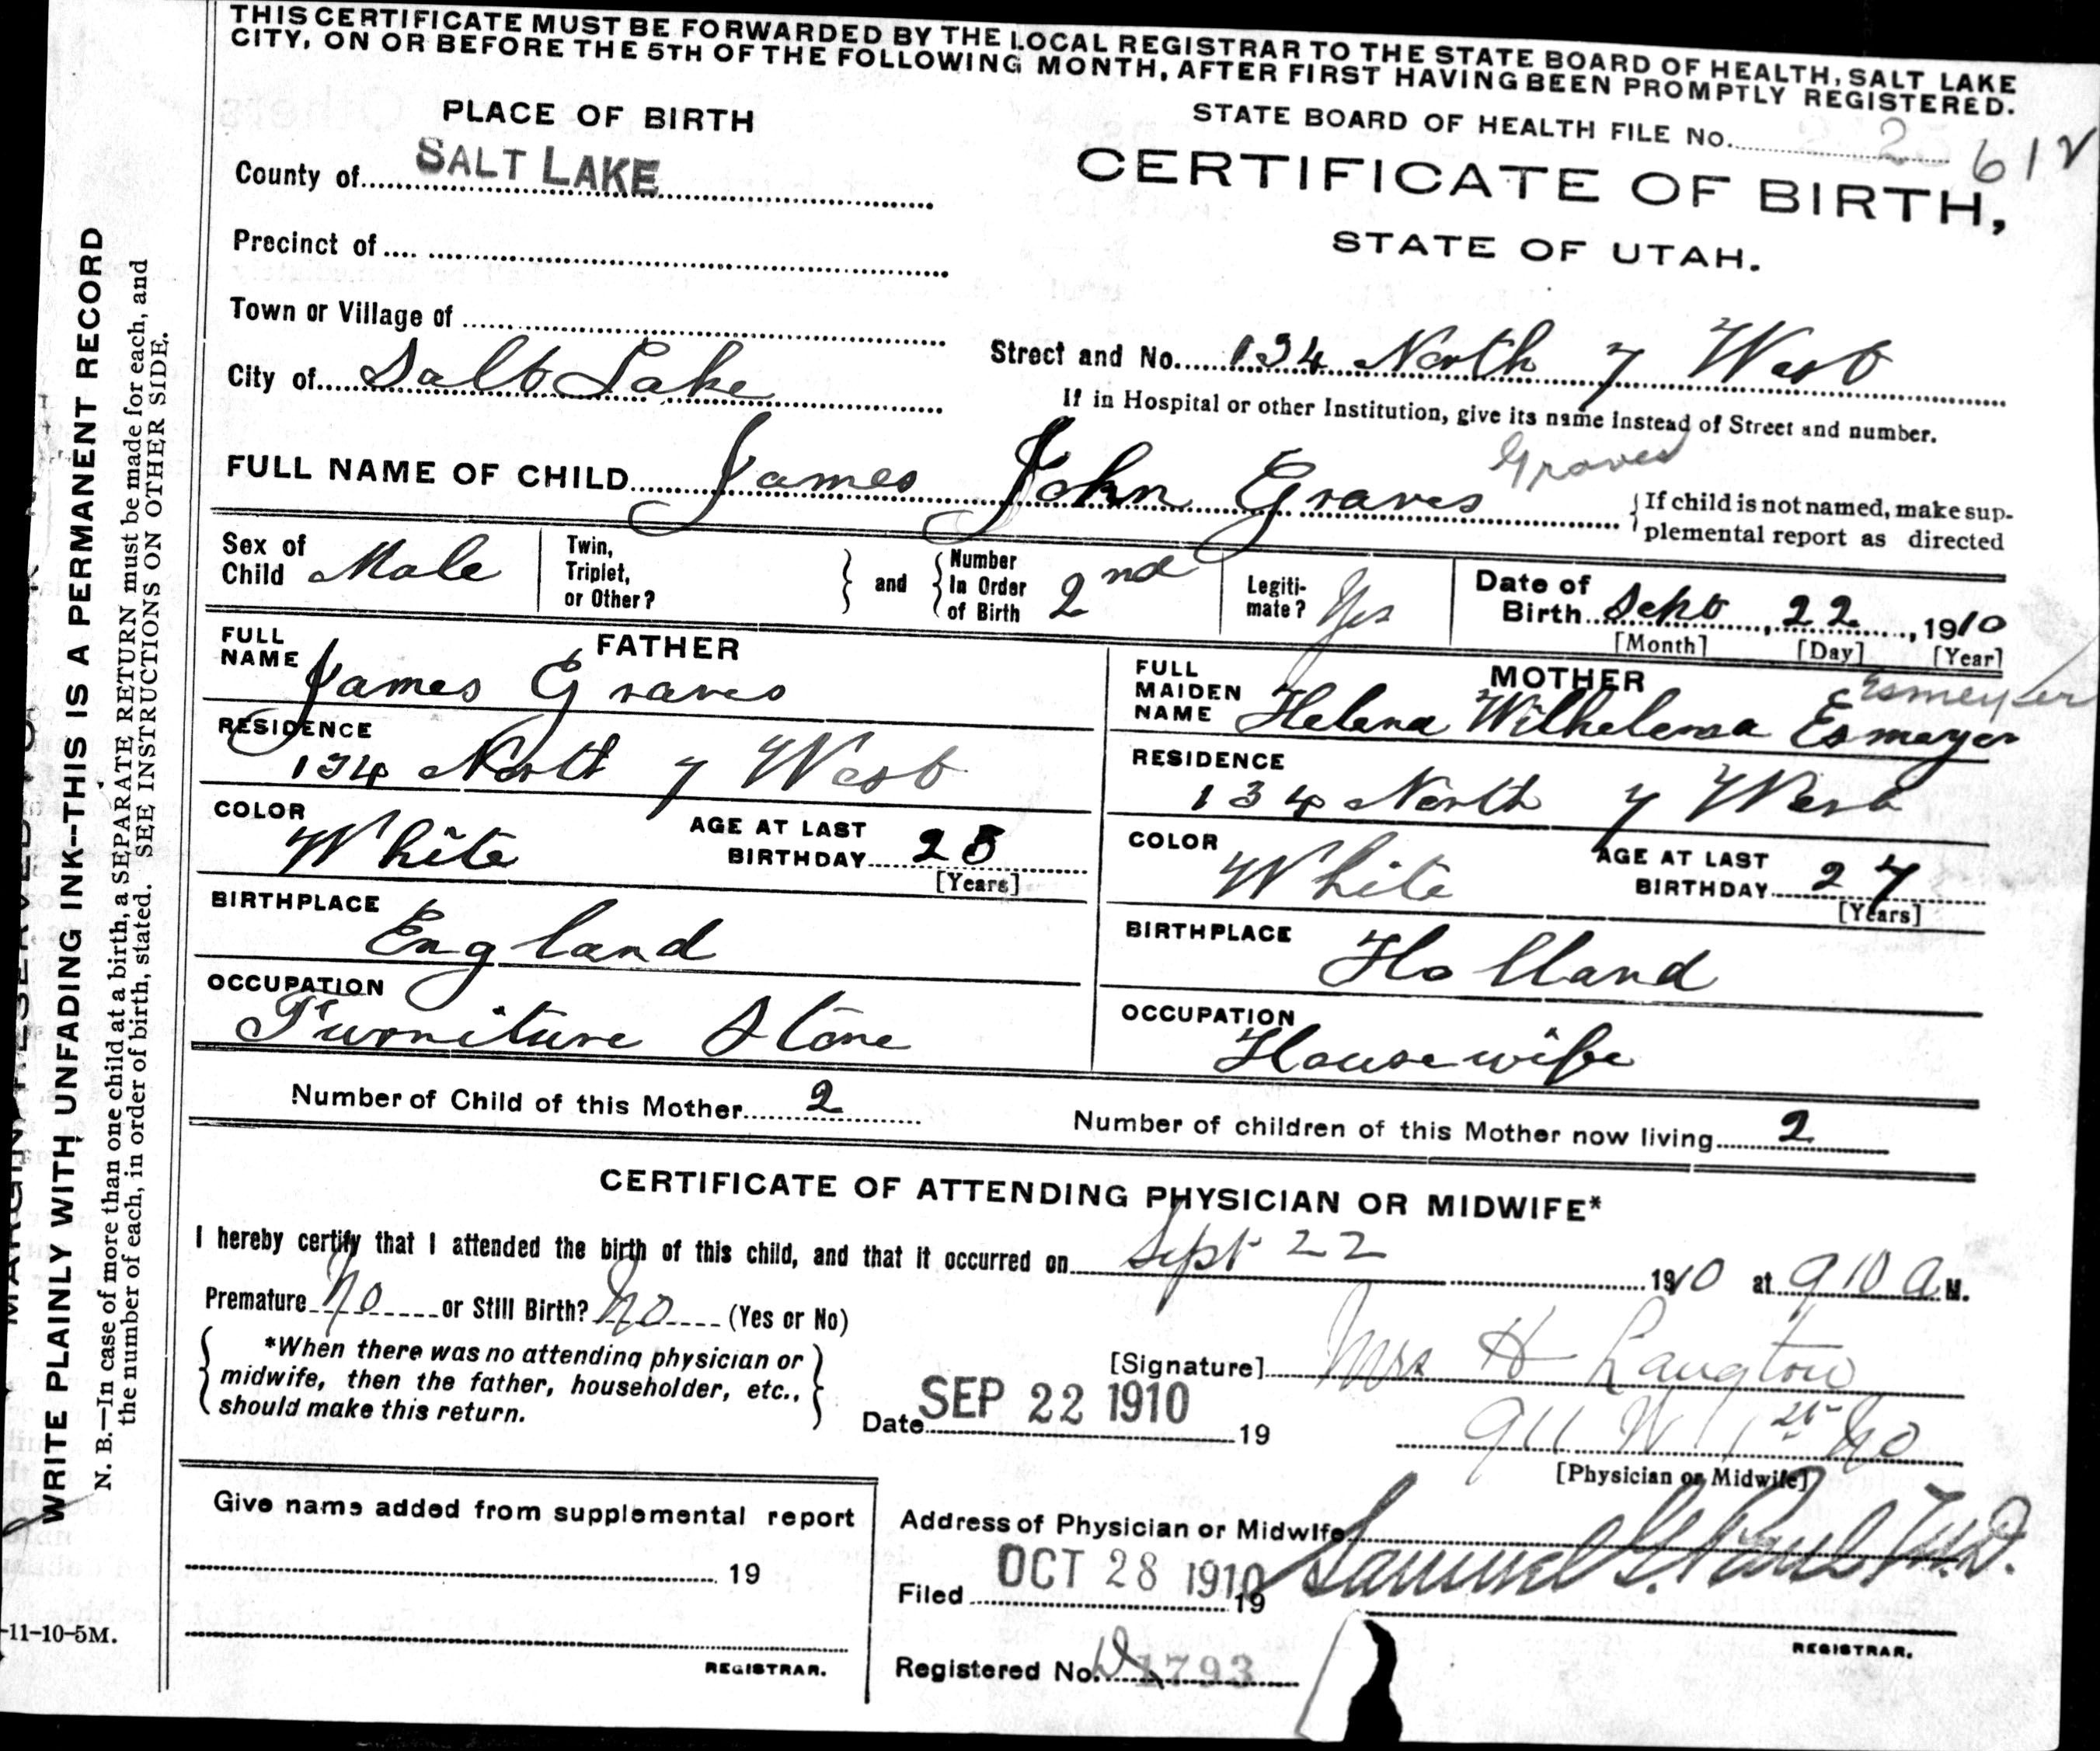 THIS CERTIFICATE MUST BE FORWARDED BY THE LOCAL REGISTRAR TO THE STATE BOARD OF HEALTH, SALT LAKE
CITY, ON OR BEFORE THE 5TH OF THE FOLLOWING MONTH, AFTER FIRST HAVING BEEN PROMPTLY REGISTERED.
PLACE OF BIRTH
STATE BOARD OF HEALTH FILE No. 612
County of SALT LAKE
CERTIFICATE OF BIRTH,
STATE OF UTAH.
Precinct of
Town or Village of
City of Salt Lake
Street and No. 134 North 7 West
If in Hospital or other Institution, give its name instead of Street and number.
Graves
FULL NAME OF CHILD James John Graves
{If child is not named, make sup-
plemental report as directed
Sex of
Child Male
Twin,
Triplet,
or Other?
and
Number
In Order
of Birth 2nd
Legiti-
mate? Yes
Date of
Birth Sept 22, 1910
[Month] [Day] [Year]
FATHER
FULL
NAME James Graves
RESIDENCE
134 North 7 West
COLOR
White
AGE AT LAST
BIRTHDAY 28
[Years]
BIRTHPLACE
England
OCCUPATION
Furniture Store
MOTHER
FULL
MAIDEN
NAME Helena Wilhelema Esmayer
RESIDENCE
134 North 7 West
COLOR
White
AGE AT LAST
BIRTHDAY 27
[Years]
BIRTHPLACE
Holland
OCCUPATION
Housewife
Number of Child of this Mother 2
Number of children of this Mother now living 2
CERTIFICATE OF ATTENDING PHYSICIAN OR MIDWIFE*
I hereby certify that I attended the birth of this child, and that it occurred on Sept 22 1910 at 9 10 a M.
Premature No or Still Birth? No (Yes or No)
*When there was no attending physician or
midwife, then the father, householder, etc.,
should make this return.
[Signature] Mrs H Langton
Date SEP 22 1910 19
911 W 1st No
[Physician or Midwife]
Give name added from supplemental report
19
REGISTRAR.
Address of Physician or Midwife
Filed OCT 28 1910 19
Samuel G. Paul M.D.
REGISTRAR.
Registered No. 1793
WRITE PLAINLY WITH UNFADING INK--THIS IS A PERMANENT RECORD
N. B.--In case of more than one child at a birth, a SEPARATE RETURN must be made for each, and
the number of each, in order of birth, stated. SEE INSTRUCTIONS ON OTHER SIDE.
-11-10-5M.